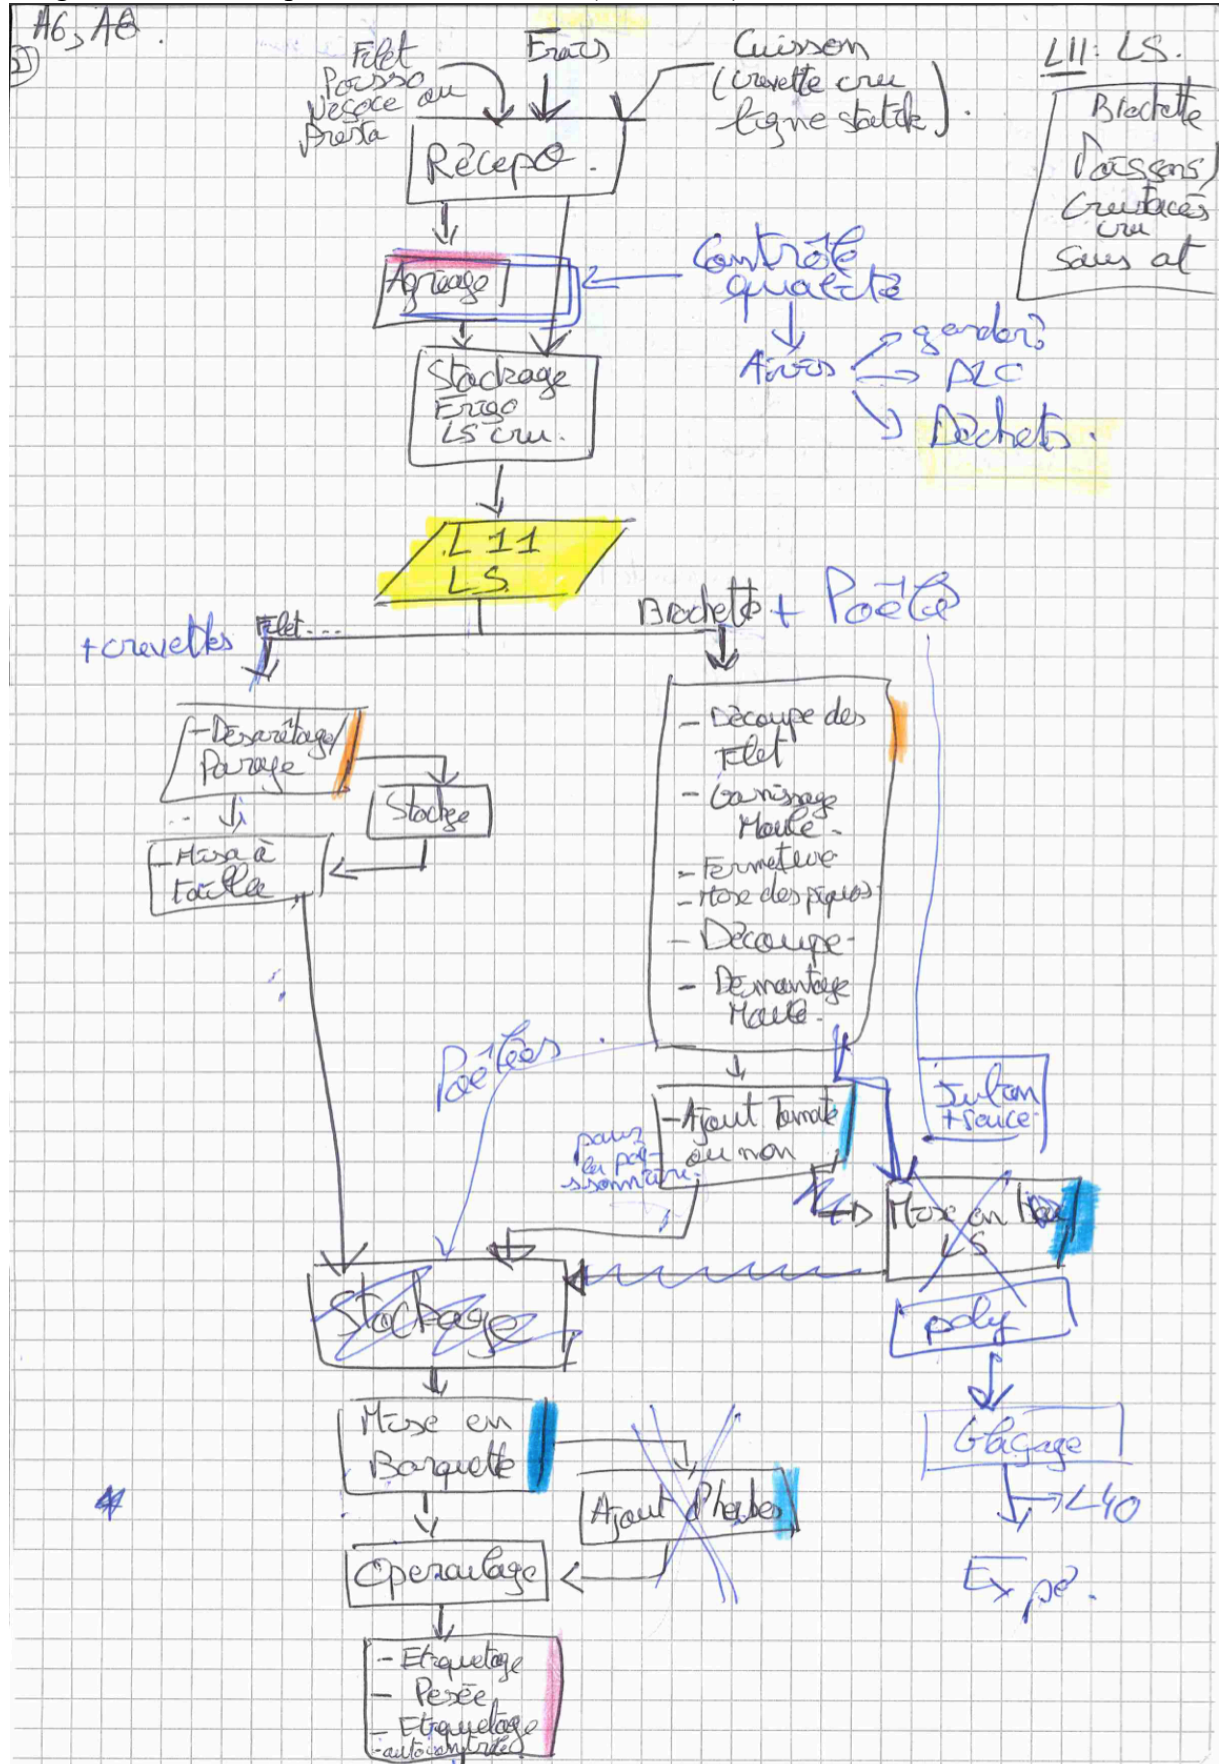 A6, A8.
Filet
Poisso
Négoce ou
presta
Frais
Cuisson
(crevette cru
ligne statik).
L11: LS.
Brochette
Poissons/
Crustacés
cru
sans at
Récep
Agréage
Contrôle
qualité
Avis
garder?
DLC
Déchets.
Stockage
Frigo
LS cru.
L 11
LS
+ crevettes
Filet....
Brochette + Poêlé
- Désarêtage/
Parage
Stockge
- Mise à
taille
- Découpe des
Filet
- Garnissage
Moule -
- Fermeture
- Mise des piques
- Découpe -
- Démontage
Moule.
Poêlées
- Ajout Tomate
ou non
pour
la poi-
ssonnerie.
+ sauce
Mise en
LS
Stockage
poly
Mise en
Barquette
Ajout d'herbes
Glaçage
L40
Expé.
Operculage
- Etiquetage
- Pesée
- Etiquetage
- autocontrôle